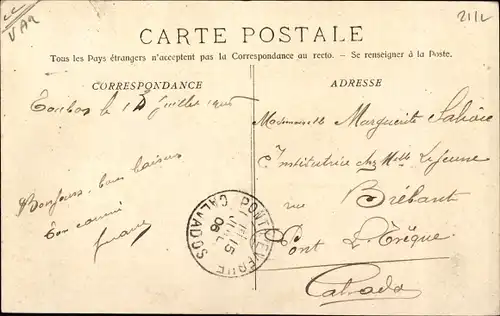 VAR
21/2
CARTE POSTALE
Tous les Pays étrangers n'acceptent pas la Correspondance au recto. — Se renseigner à la Poste.
CORRESPONDANCE
ADRESSE
Toulon le 13 juillet 1906
Bonjour, bons baisers
Ton
Mademoiselle Marguerite
Institutrice chz Melle Lejeune
rue Brébant
Pont L'Evêque
Calvados
PONT-L'EVEQUE
15
JUIL
06
CALVADOS